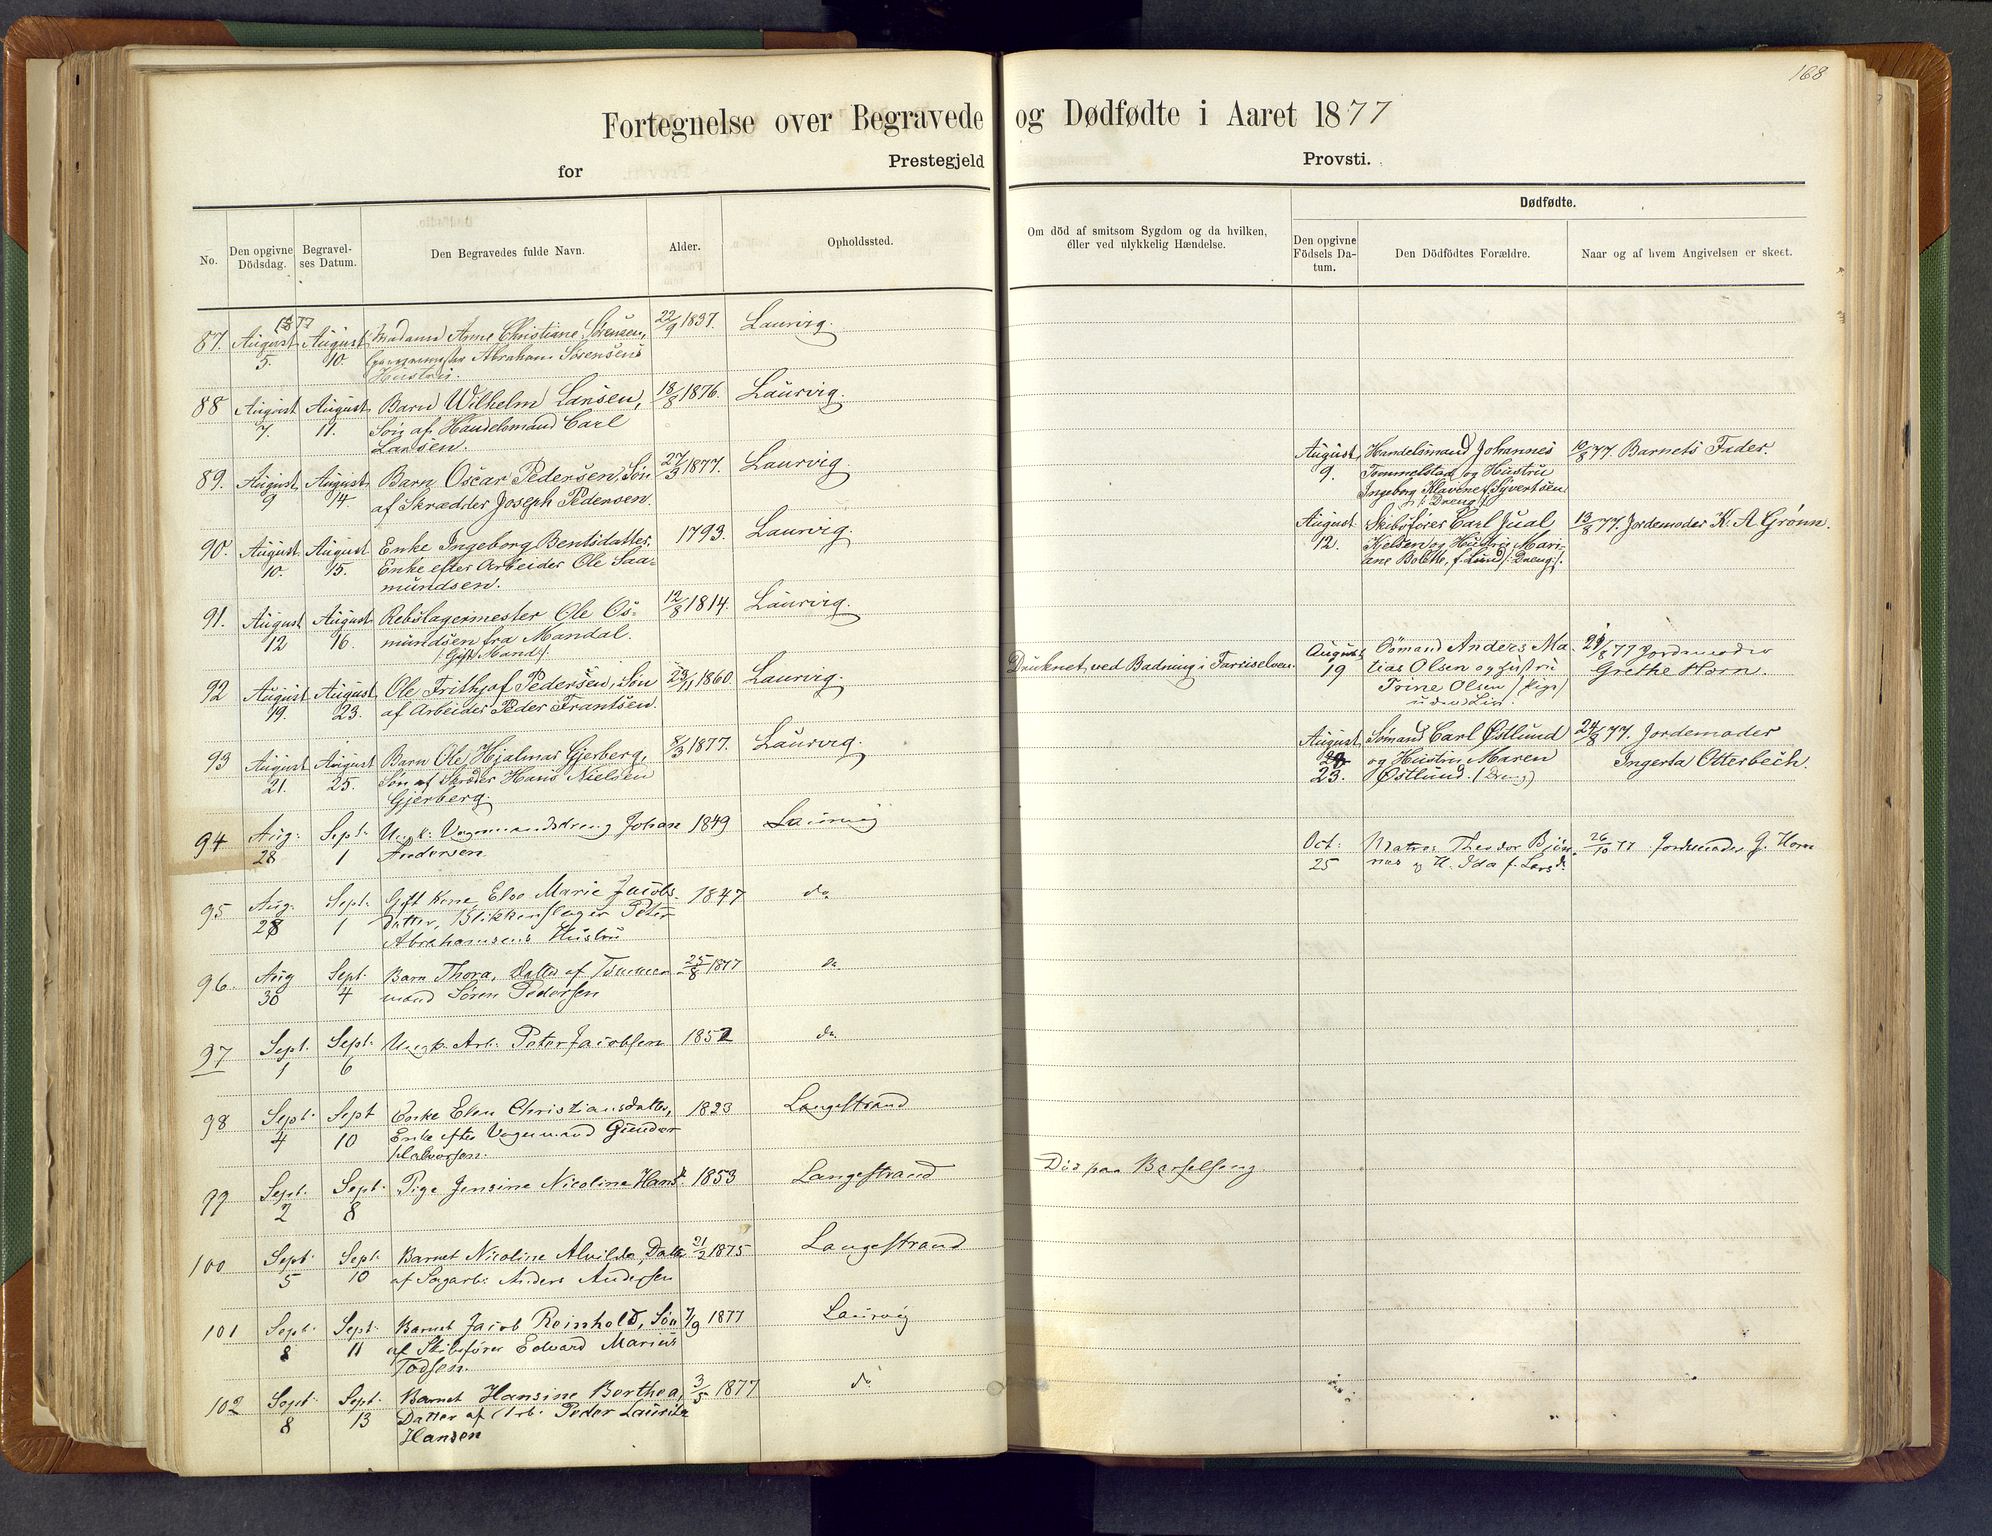 168
Fortegnelse over Begravede og Dødfødte i Aaret 1877
for Prestegjeld Provsti.
No.
Den opgivne Dödsdag.
Begravelses Datum.
Den Begravedes fulde Navn.
Alder.
Opholdssted.
Om död af smitsom Sygdom og da hvilken,
éller ved ulykkelig Hændelse.
Dødfødte.
Den opgivne
Födsels Da-
tum.
Den Dödfödtes Forældre.
Naar og af hvem Angivelsen er skeet.
1877
87. August 5. August 10. Madame Anne Christiane Sörensen, 22/9 1837. Laurvig.
Abraham Sörensens
Hustru.
88 August 7. August 11. Barn Wilhelm Lansen, 18/8 1876. Laurvig.
Søn af Handelsmand Carl
Lansen.
89. August 9 August 14. Barn Oscar Pedersen, Søn 27/3 1877. Laurvig
af Skrædder Joseph Pedersen.
90. August 10. August 15. Enke Ingeborg Bentsdatter, 1793. Laurvig.
Enke efter Arbeider Ole Saa-
mundsen.
91. August 12 August 16. Rebslagermester Ole Os- 12/8 1814. Laurvig.
mundsen fra Mandal.
/: Gift Mand :/
92 August 19. August 23. Ole Frithjof Pedersen, Søn 1860. Laurvig.
af Arbeider Peder Frantsen.
Druknet ved Badning i Farriselven.
93 August 21. August 25. Barn Ole Hjalmar Gjerberg, 8/3 1877. Laurvig.
Søn af Skræder Hans Nielsen
Gjerberg
94 Aug: 28 Sept: 1 Ungk: Vognmandsdreng Johan 1849 Laurvig
Andersen
95 Aug. 28 Sept. 1 Gift Kone, Else Marie Jacobs- 1847 do
datter, Blikkenslager Peter
Abrahamsens Hustru
96. Aug 30 Sept. 4 Barn Thora, Datter af Tømmer- 25/8 1877 do
mand Søren Pedersen
97 Sept. 1 Sept. 6 Ungk. Arb: Peter Jacobsen 1852 do
98 Sept. 4 Sept 10 Enke Elen Christiansdatter, 1823 Langestrand
Enke efter Vognmand Gunder
Halvorsen.
99 Sept. 2 Sept. 8 Pige Jensine Nicoline Hans 1853 Langestrand
Död paa Barselseng.
100 Sept 5 Sept. 10 Barnet Nicoline Alvilde, Datter 21/2 1875 Langestrand
af Sagarb: Anders Andersen
101 Sept. 8 Sept. 11 Barnet Jacob Reinhold, Søn 7/9 1877 Laurvig
af Skibsfører Edvard Marius
Todsen.
102 Sept. 8 Sept. 13 Barnet Hansine Berthea, 3/5 1877 do
Datter af Arb. Peder Lauritz
Hansen
August 9. Handelsmand Johannes 10/8 77. Barnets Fader.
Tommelstad og Hustru
Ingeborg Klavine f. Syvertsen
/: Dreng :/
August 12. Skibsfører Carl Jual 13/8 77. Jordemoder K. A Grønn.
Kjelsen og Hustru Mari-
ane Bolette, f. Lund /: Dreng :/.
August 19 Sömand Anders Ma- 77 Jordemoder
tias Olsen og Hustru Grethe Horn.
Trine Olsen / Pige /
uden Liv
August 23. Sømand Carl Østlund 24/8 77. Jordemoder
og Hustru Maren Ingerta Otterbech.
Østlund. (Dreng)
Oct: 25 Matros Theodor Bjön- 26/10 77 Jordemoder G. Horn
nes og H. Ida f. Larsd.